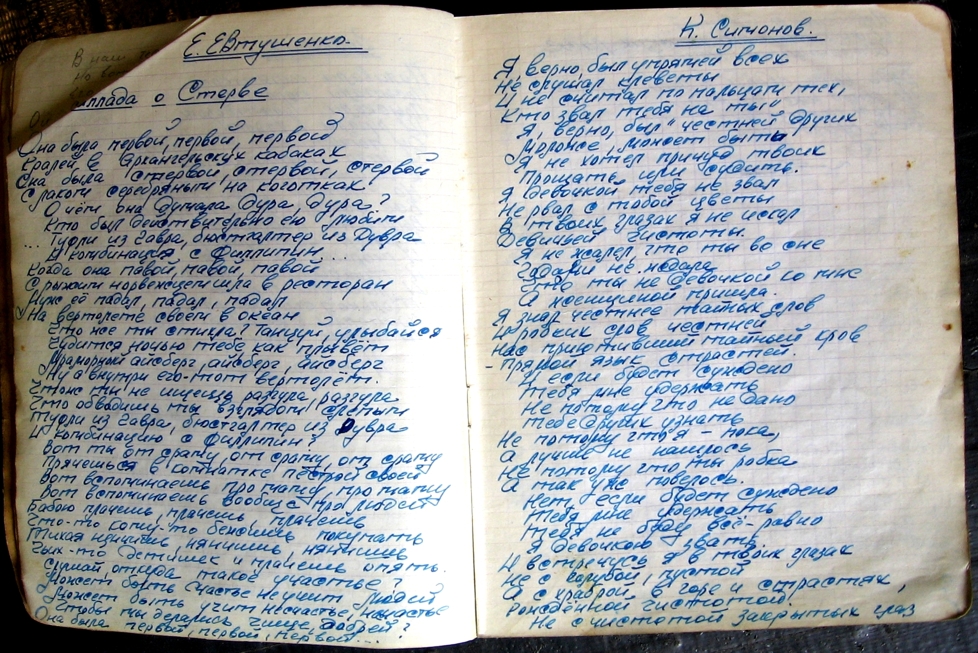 Е. Евтушенко.
Баллада о Стерве
Она была первой, первой, первой
Кралей в Архангельских кабаках
Она была стервой, стервой, стервой
С лаком серебряным на коготках
О чём она думала дура, дура?
Кто был действительно ею любим
... Туфли из Гавра, бюстгалтер из Дувра
И комбинация с Филлипин...
Когда она павой, павой, павой
С рыжим норвежцем шла в ресторан
Муж её падал, падал, падал
На вертолёте своём в океан
Что же ты стихла? Танцуй, улыбайся
Чудится ночью тебе как плывёт
Мраморный айсберг, айсберг, айсберг
Ну а внутри его-тот вертолёт.
Что ж ты не ищешь разгула, разгула
Что обводишь ты взглядом слепым
Туфли из Гавра, бюстгалтер из Дувра
И комбинацию с Филлипин?
Вот ты от сраму, от сраму, от сраму
Прячешься в комнатке пёстрой своей
Вот вспоминаешь про маму, про маму
Вот вспоминаешь вообще про людей
Бабою плачешь плачешь плачешь
Что-то кому-то бежишь покупать
Тихая нянчишь, нянчишь, нянчишь
Чьих-то детишек и плачешь опять.
Слушай, откуда такое участье?
Может быть счастье не учит людей
Может быть учит несчастье, несчастье
Чтобы мы делались чище, добрей?
Она была первой, первой, первой...
К. Симонов.
Я, верно, был упрямей всех
Не слушал клеветы
И не считал по пальцам тех,
Кто звал тебя на "ты"
Я, верно, был честней других
Моложе, может быть
Я не хотел грехов твоих
Прощать или судить.
Я девочкой тебя не звал
Не рвал с тобой цветы
В твоих глазах я не искал
Девичьей чистоты.
Я не жалел, что ты во сне
Годами не ждала
Что ты не девочкой ко мне
А женщиной пришла.
Я знал честнее тайных слов
И робких слов честней
Нас приютивший тайный кров
- Прямой язык страстей.
И если будет суждено
Тебя мне удержать
Не потому что не дано
Тебе других узнать
Не потому что я - пока,
А лучше не нашлось
Не потому что ты робка
А так уж повелось.
Нет если будет суждено
Тебя мне удержать
Тебя не буду всё-равно
Я девочкою звать.
И встречусь я в твоих глазах
Не с голубой, пустой
А с храброй в горе и страстях,
Рождённой чистотой.
Не с чистотой закрытых глаз